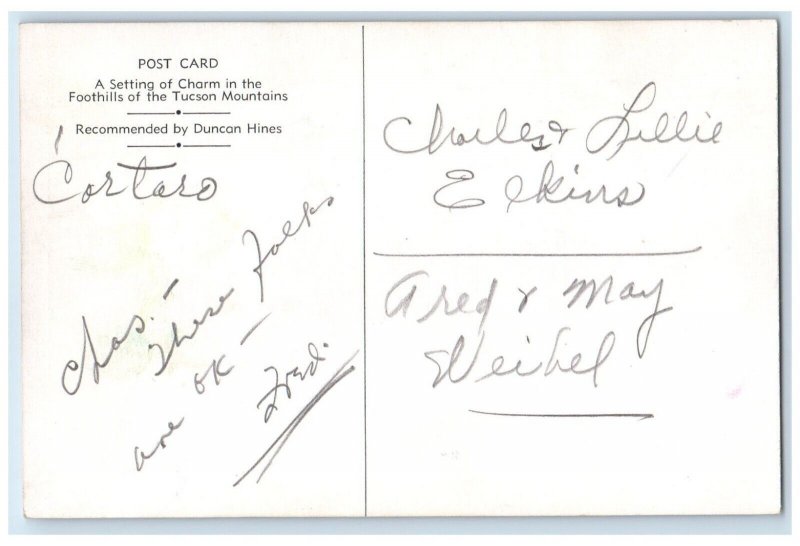 POST CARD
A Setting of Charm in the
Foothills of the Tucson Mountains
Recommended by Duncan Hines
Cortaro
Chas. -
These folks
are OK -
Fred.
Charles & Lillie
Elkins
Fred & May
Weibel